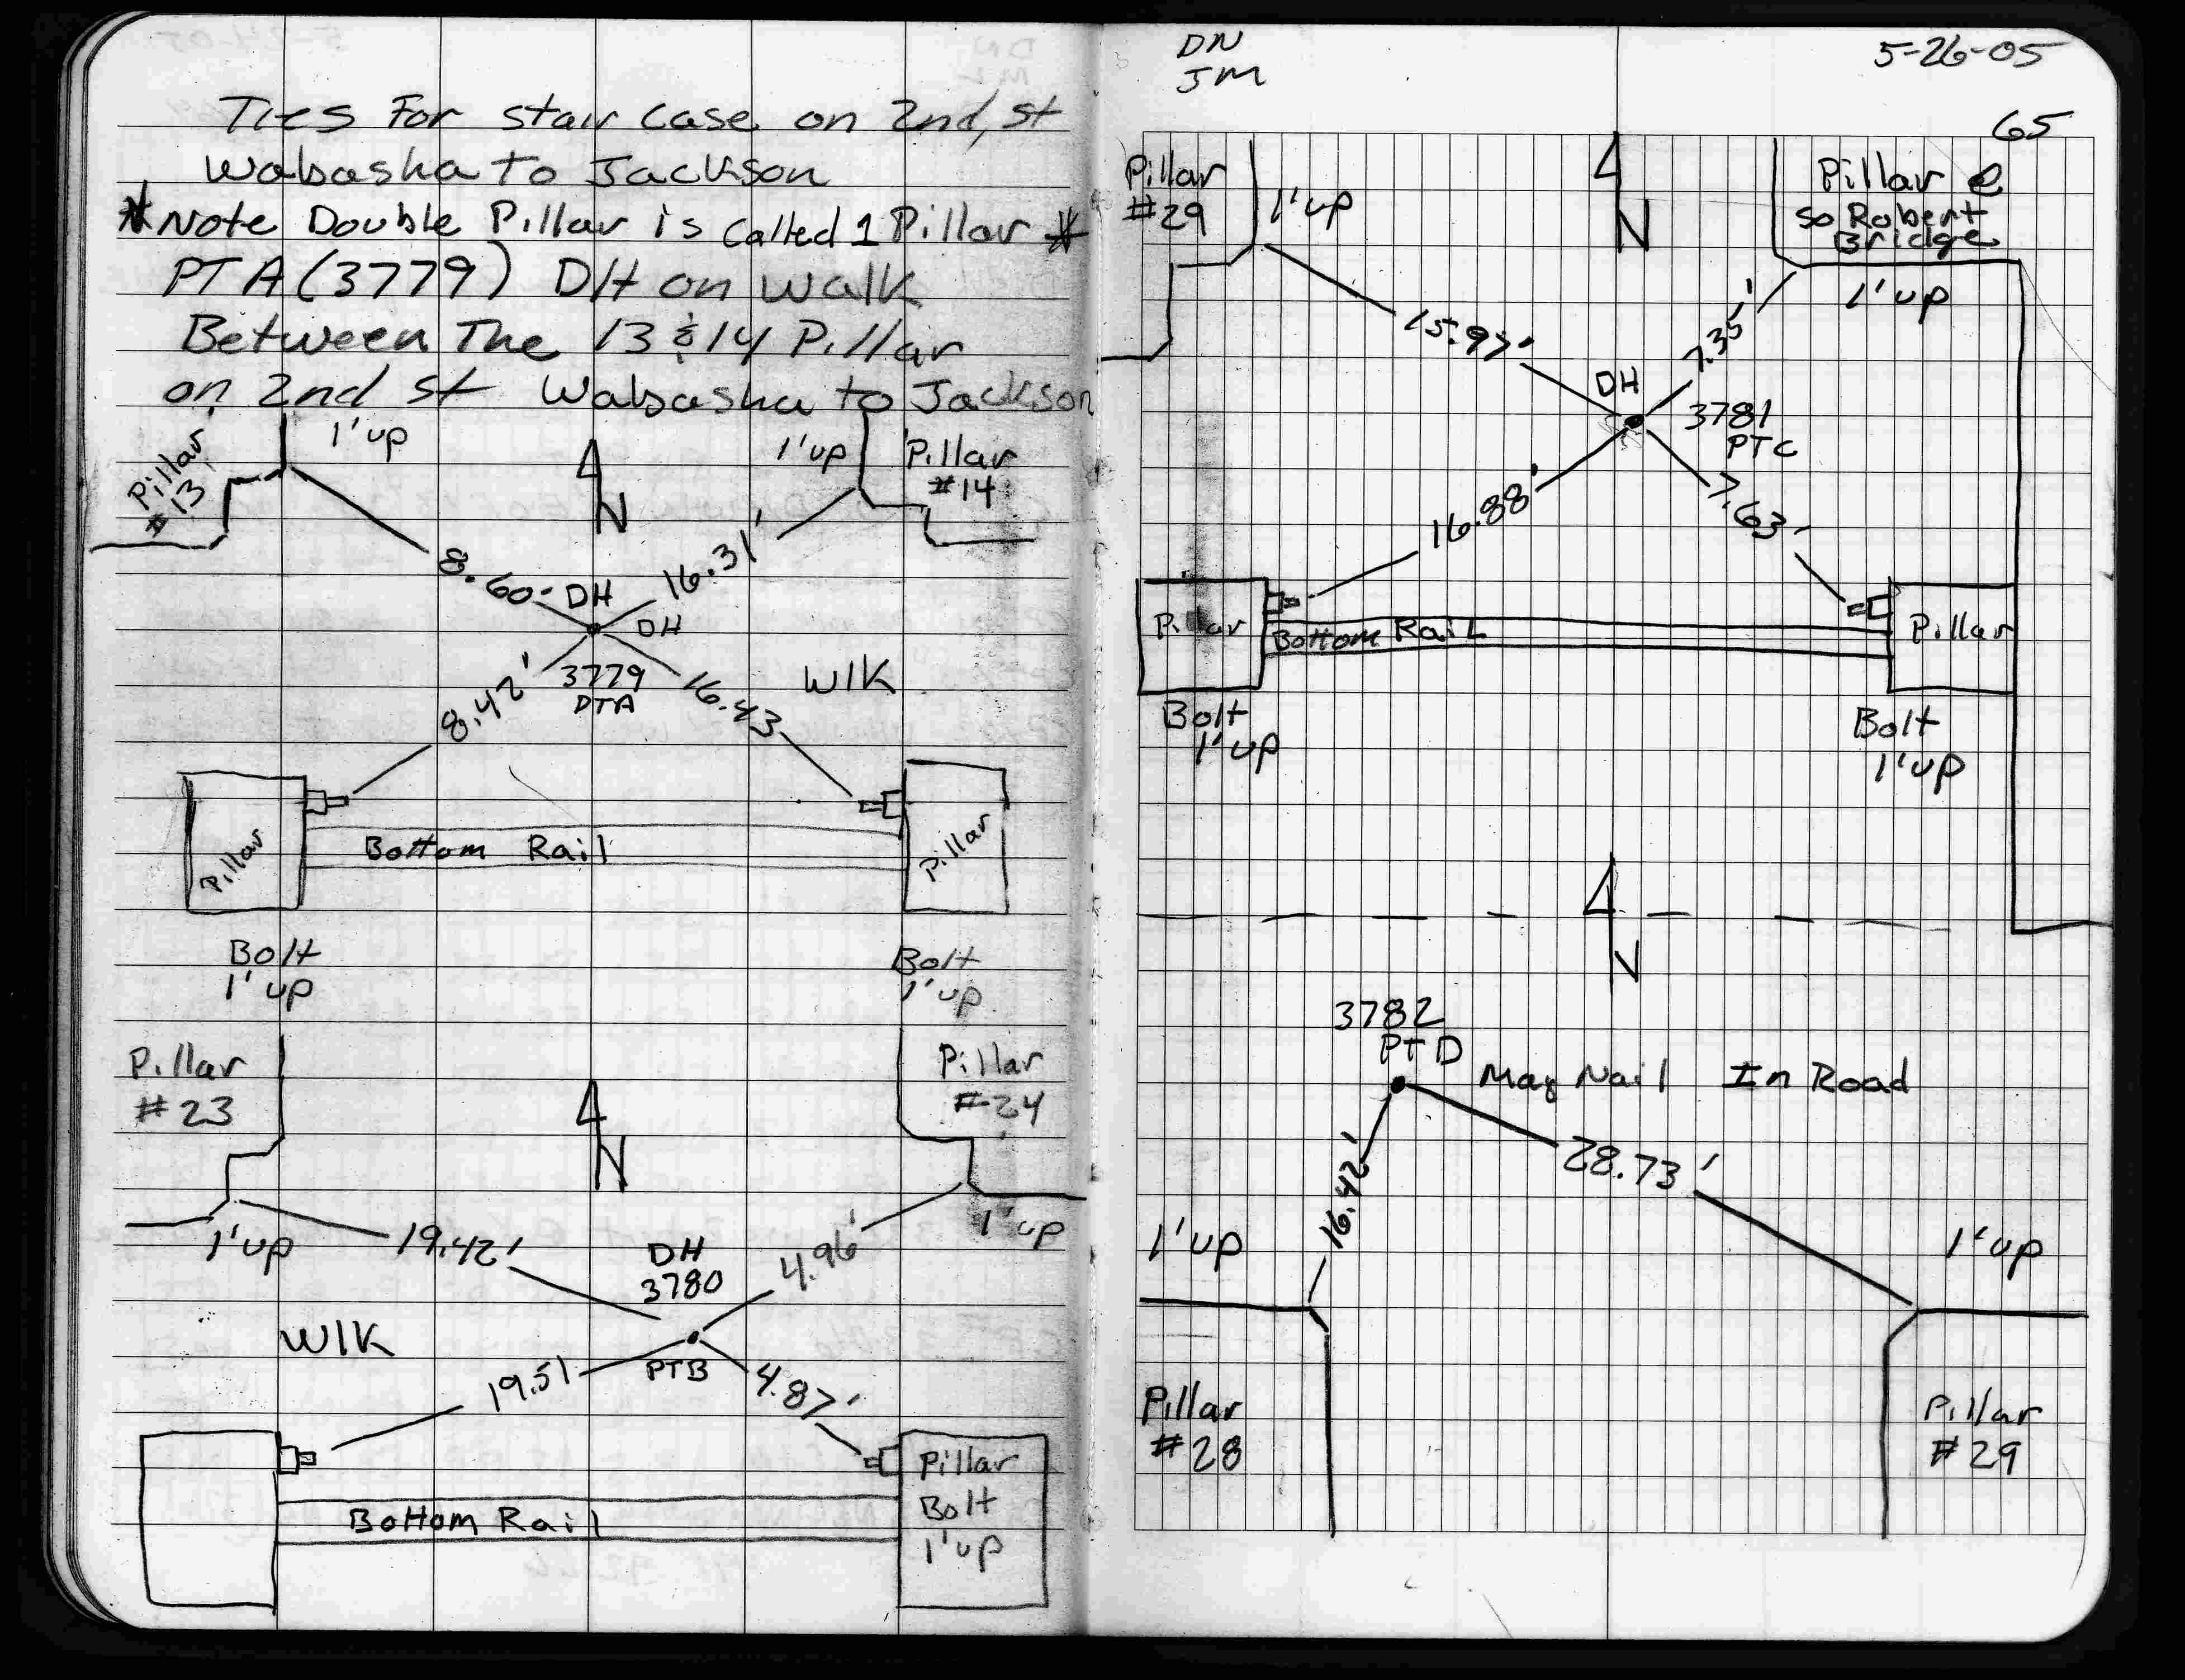 Ties For stair case on 2nd, st
Wabasha To Jackson
* Note Double Pillar is called 1 Pillar *
PTA (3779) DH on walk
Between The 13 & 14 Pillar
on 2nd st Wabasha to Jackson
Pillar
#13
1' up
N
1' up
Pillar
#14
8.60'
DH
16.31'
DH
3779
PTA
8.42'
16.43
WlK
Pillar
Bottom Rail
Pillar
Bolt
1' up
Bolt
1' up
Pillar
#23
N
Pillar
#24
1' up
19.42'
DH
3780
4.96'
1' up
WlK
19.51
PTB
4.87'
Bottom Rail
Pillar
Bolt
1' up
DN
JM
5-26-05
65
Pillar
#29
1' up
N
Pillar @
So Robert
Bridge
1' up
15.97'
7.35'
DH
3781
PTC
16.88'
7.63'
Pillar
Bottom Rail
Pillar
Bolt
1' up
Bolt
1' up
N
3782
PTD
Mag Nail In Road
16.42'
28.73'
1' up
1' up
Pillar
#28
Pillar
#29